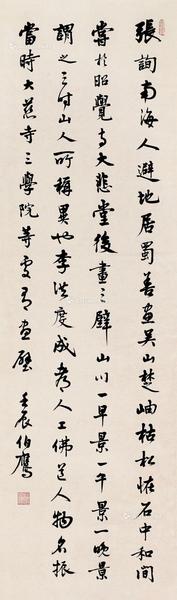 張詢南海人避地居蜀善畫吳山楚岫枯松恠石中和間
嘗於昭覺寺大悲堂後畫三壁山川一早景一午景一晚景
謂之三時山人所稱異也李洪度成都人工佛道人物名振
當時大慈寺三學院等處有畫壁 壬辰伯鷹